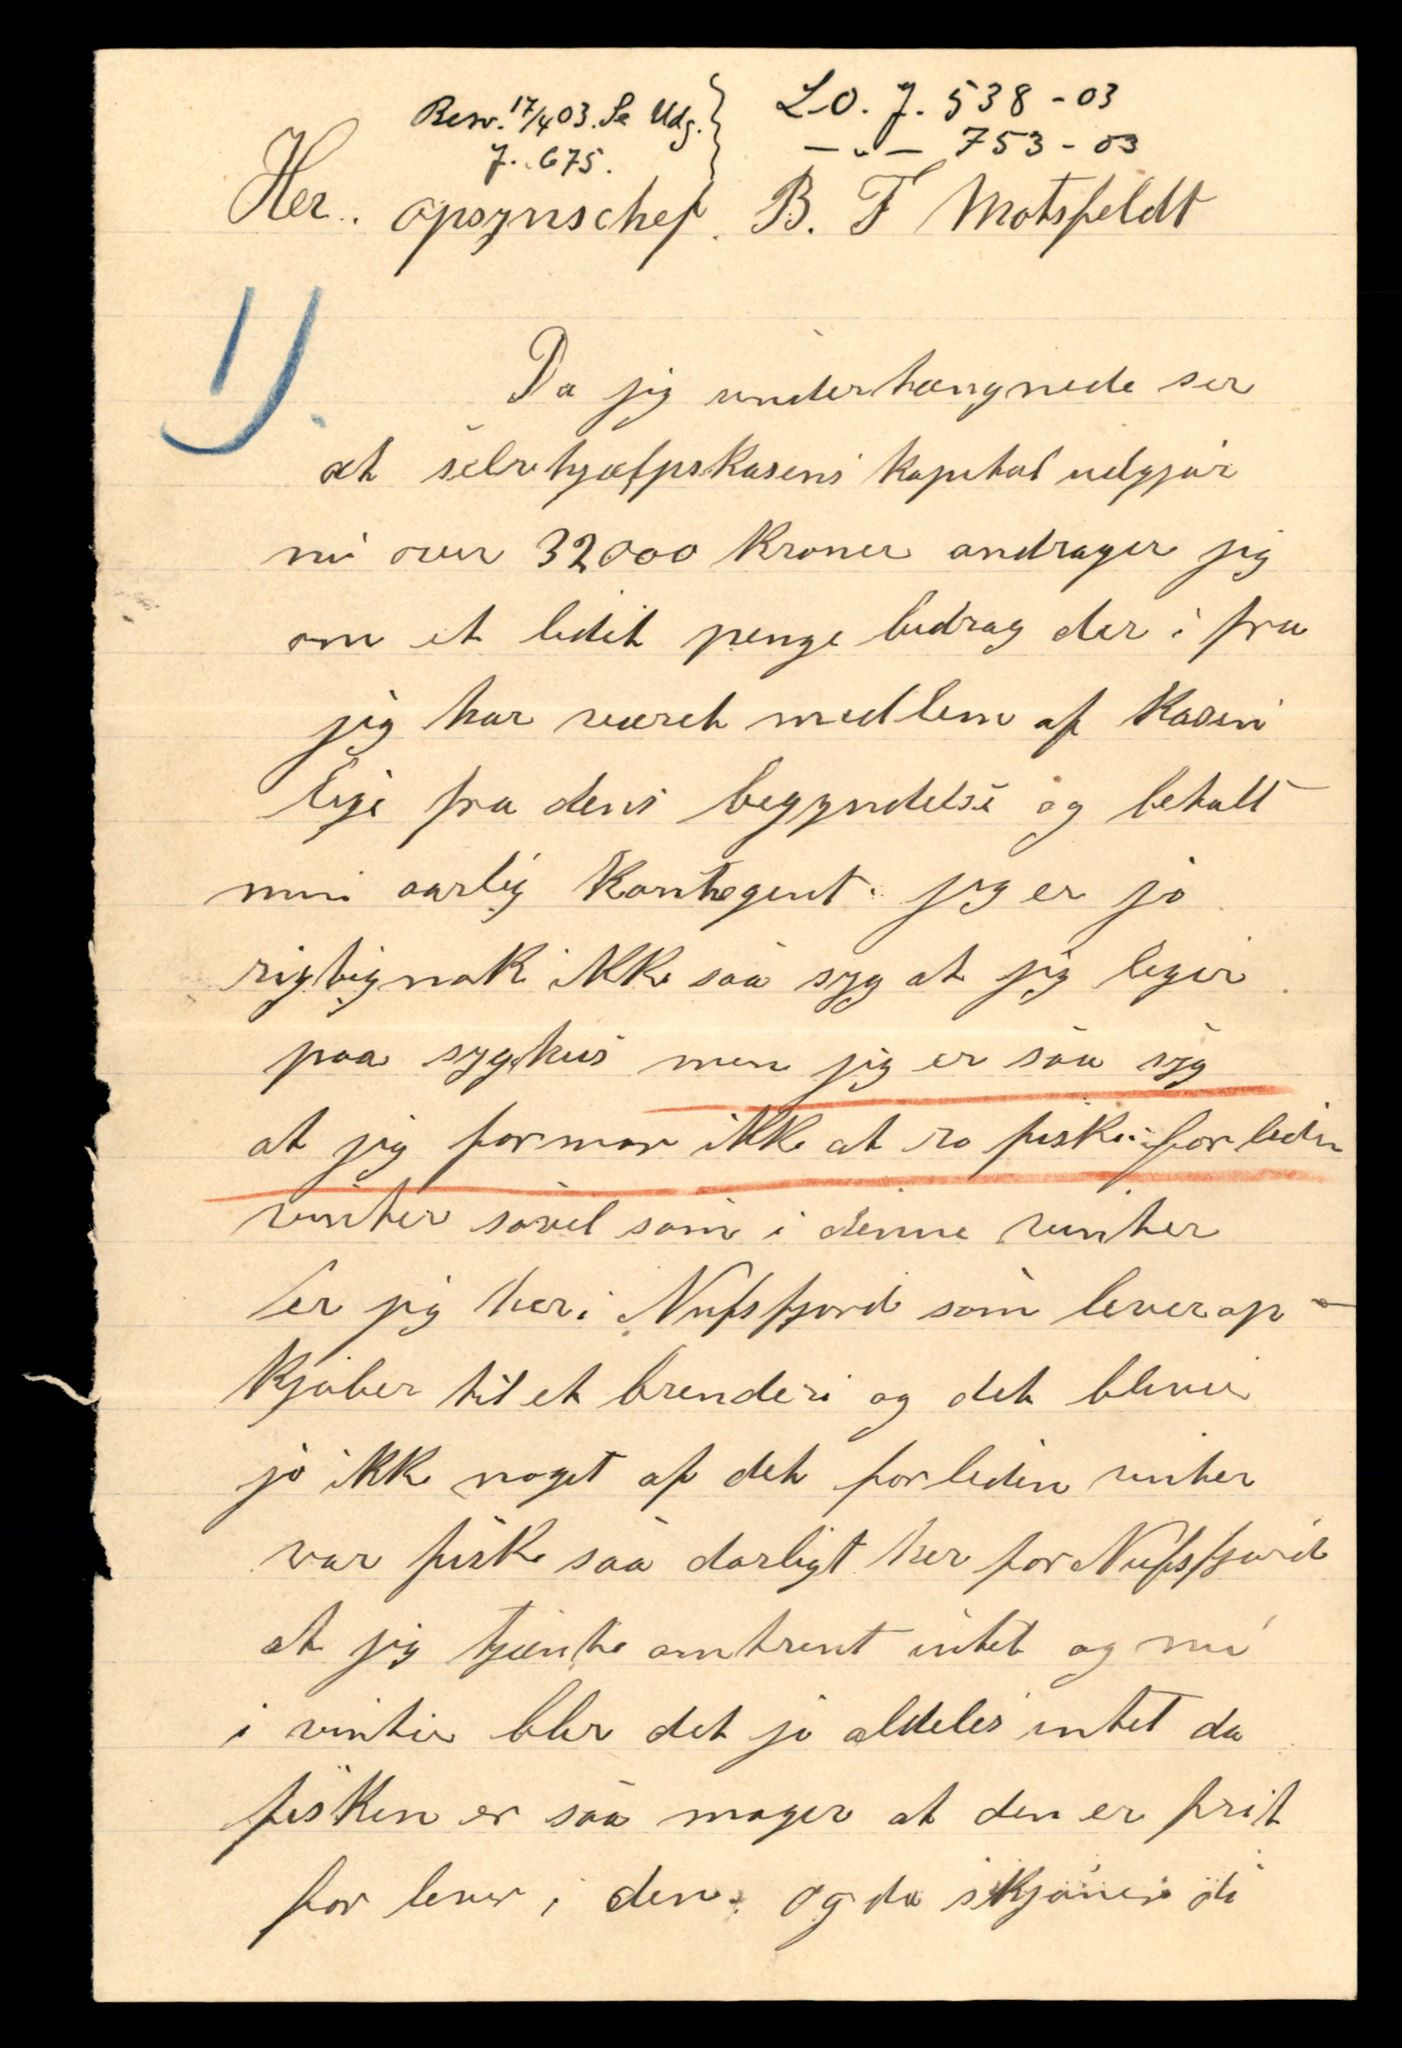 Besv. 17/4 03. Se Udg. } L.O. J. 538-03
J. 675. — " — 753-03
Her. opsynschef. B. F Motsfeldt
1).
Da jig underhængnede ser
at selvhjælpskasens kapital udgjør
nu over 32000 Kroner andrager jig
om et lidit penge bidrag der i fra
jig har været medlem af Kasen
lige fra dens begyndelse og betalt
min aarlig Kontegent. jeg er jo
rigtignok ikke saa syg at jig leger
paa syghus men jig er saa syg
at jig formar ikke at ro fiske. forleden
vinter savel som i denne vinter
er jig her i Nufsfjord som leverop-
kjøber til et brenderi og det bliver
jo ikke noget af det forleden vinter
var fiske saa darligt her for Nufsfjord
at jig tjænte omtrent intet og nu
i vinter blir det jo aldeles intet da
fisken er saa mager at den er frit
for lever i den. og da skjønner di